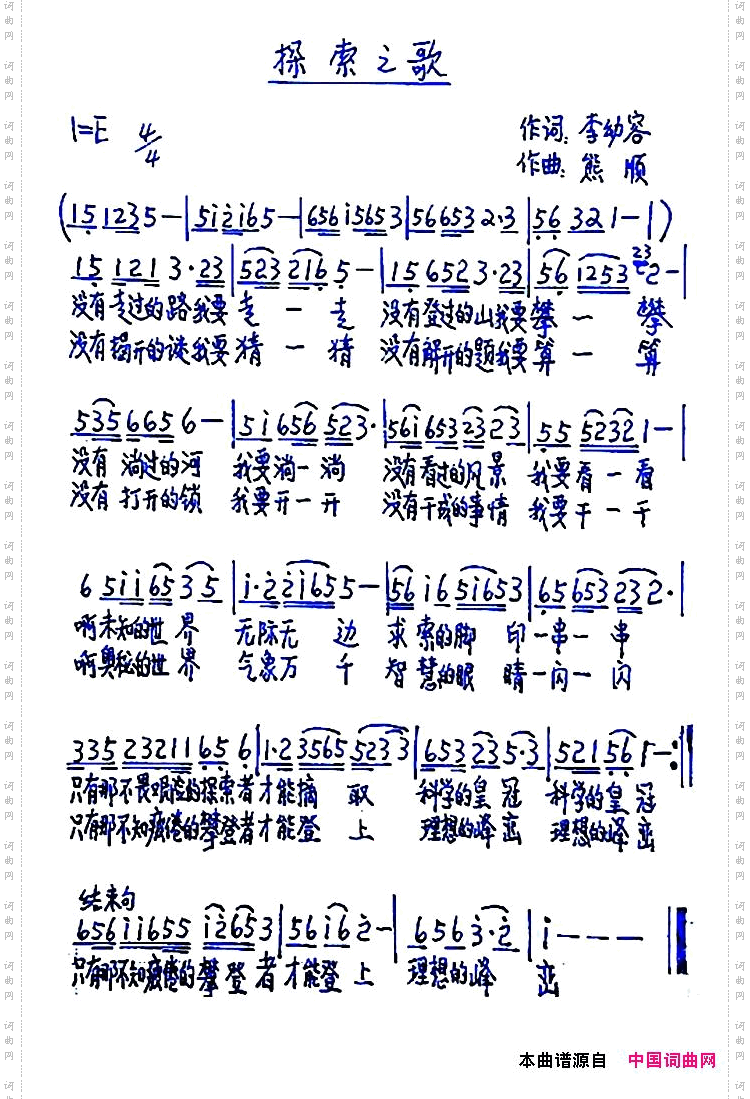 探索之歌
1=E 4/4
作词:李幼容
作曲:熊顺
(15 1235-|5i2i65-|656i5653|566532·3|56 321-|)
15 1213·23|5232165-|156523·23|56 12532-|
没有走过的路我要走一走 没有登过的山我要攀一攀
没有揭开的谜我要猜一猜 没有解开的题我要算一算
5356656-|5i656523·|56i6532323|5552321-|
没有淌过的河 我要淌一淌 没有看过的风景 我要看一看
没有打开的锁 我要开一开 没有干成的事情 我要干一干
65ii6535|i·22i655-|56i65i653|65653232·|
啊未知的世界 无际无边 求索的脚印一串一串
啊奥秘的世界 气象万千 智慧的眼睛一闪一闪
33523211656|1·235655233|653235·3|521561-:||
只有那不畏艰险的探索者才能摘取 科学的皇冠 科学的皇冠
只有那不知疲倦的攀登者才能登上 理想的峰峦 理想的峰峦
结束句
656ii655i2653|56i62-|6563·2|i---||
只有那不知疲倦的攀登者才能登上 理想的峰峦
本曲谱源自 中国词曲网
词曲网